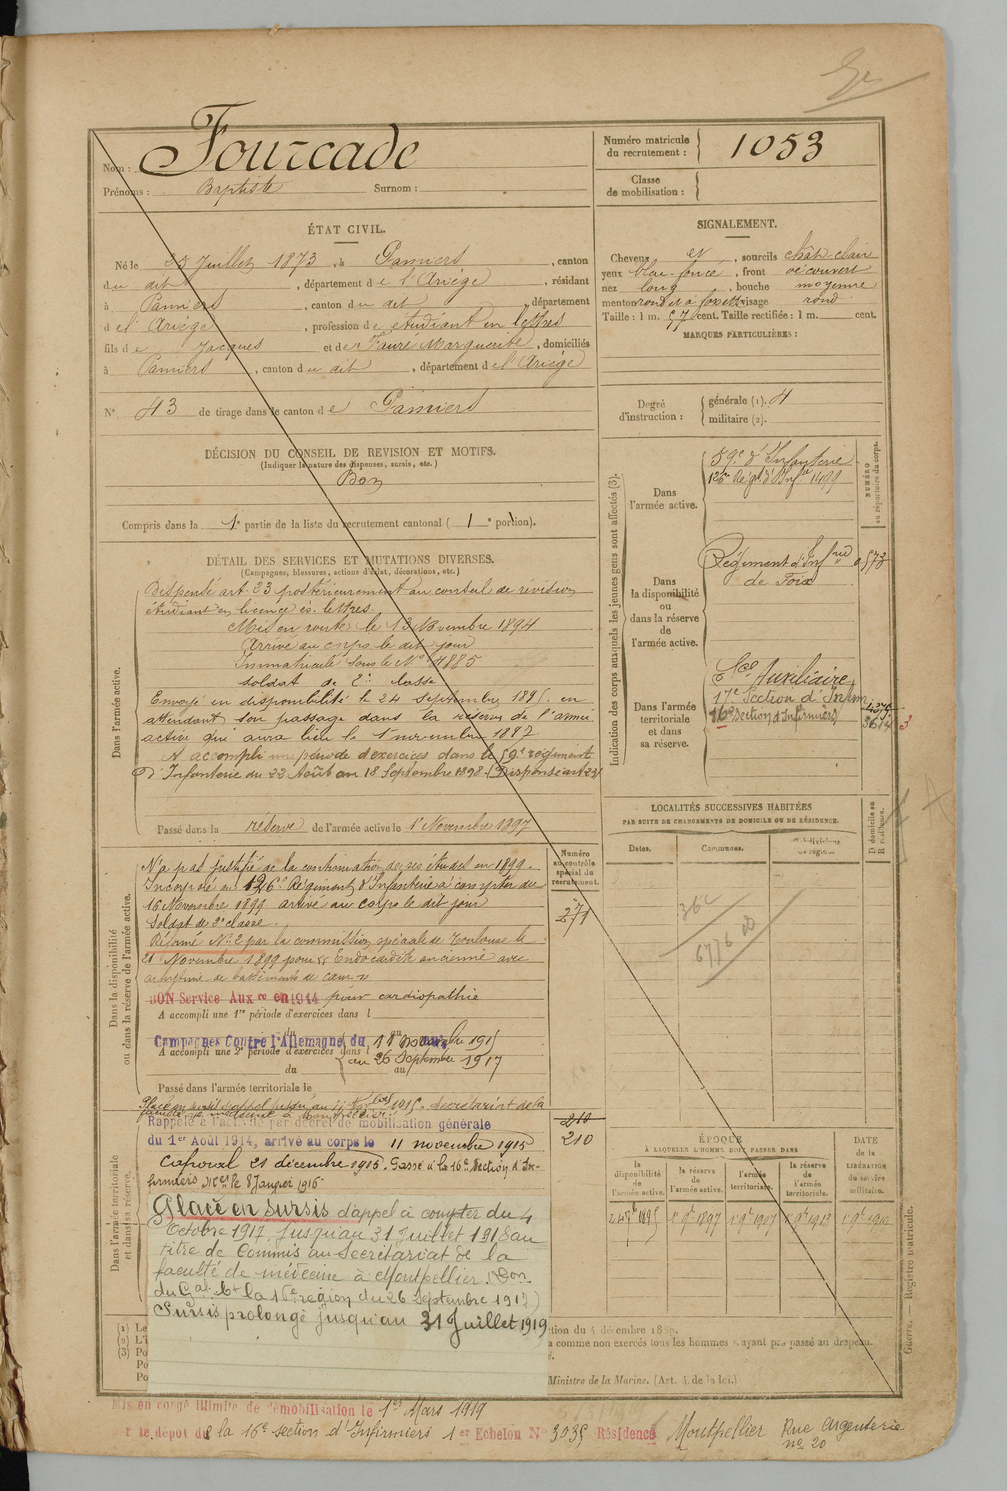 Nom : Fourcade
Prénoms : Baptiste Surnom :
Numéro matricule du recrutement : 1053
Classe de mobilisation :
ÉTAT CIVIL.
Né le 25 Juillet 1873, à Pamiers, canton
du dit, département de l'Ariège, résidant
à Pamiers, canton du dit, département
del' Ariège, profession de étudiant en lettres
fils de Jacques et de Fauré Marguerite, domiciliés
à Pamiers, canton du dit, département de l'Ariège
N° 43 de tirage dans le canton de Pamiers
SIGNALEMENT.
Cheveux et, sourcils chât. clair
yeux bleu foncé, front découvert
nez long, bouche moyenne
menton rond et à fossette visage rond
Taille : 1 m. 57 cent. Taille rectifiée : 1 m. cent.
MARQUES PARTICULIÈRES :
Degré d'instruction : générale (1). 4
militaire (2).
DÉCISION DU CONSEIL DE REVISION ET MOTIFS.
(Indiquer la nature des dispenses, sursis, etc.)
Bon
Compris dans la 1e partie de la liste du recrutement cantonal ( 1e portion).
DÉTAIL DES SERVICES ET MUTATIONS DIVERSES.
(Campagnes, blessures, actions d'éclat, décorations, etc.)
Dans l'armée active.
Dispensé art. 23 postérieurement au conseil de révision
étudiant en licence ès-lettres.
Mis en route le 13 Novembre 1894
Arrivé au corps le dit jour
Immatriculé sous le N° 4885
soldat de 2e classe
Envoyé en disponibilité le 24 Septembre 1895, en
attendant son passage dans la réserve de l'armée
active qui aura lieu le 1er novembre 1897
A accompli une période d'exercices dans le 59e régiment
d'Infanterie du 22 Août au 18 Septembre 1898 (Dispensé art 23)
Passé dans la réserve de l'armée active le 1er Novembre 1897
Indication des corps auxquels les jeunes gens sont affectés (3).
NUMÉRO au répertoire du corps.
Dans l'armée active.
59e d'Infanterie
126e Régt d'Infie 1899
Dans la disponibilité ou dans la réserve de l'armée active.
Régiment d'Infrie
de Foix
Dans l'armée territoriale et dans sa réserve.
Sce Auxiliaire
17e Section d'Infirm
16e Section d'Infirmiers
3
LOCALITÉS SUCCESSIVES HABITÉES
PAR SUITE DE CHANGEMENTS DE DOMICILE OU DE RÉSIDENCE.
Dates. Communes. Subdivisions de région. D domicile ou R résidence.
Dans la disponibilité ou dans la réserve de l'armée active.
Numéro au contrôle spécial du recrutement.
N'a pas justifié de la continuation de ses études en 1899.
Incorporé au 126e Régiment d'Infanterie à compter du
16 Novembre 1899 arrivé au corps le dit jour
Soldat de 2e classe
Réformé N° 2 par la commission spéciale de Toulouse le
21 Novembre 1899 pour "Endocardite ancienne avec
arhytmie de battements de cœur"
271
BON Service Auxre en 1914 pour cardiopathie
A accompli une 1re période d'exercices dans l
du au
Campagnes Contre l'Allemagne du 11 novembre 1915
A accompli une 2e période d'exercices dans l au 26 Septembre 1917
du au
Passé dans l'armée territoriale le
Dans l'armée territoriale et dans sa réserve.
Rappelé à l'activité par décret de mobilisation générale
du 1er Août 1914, arrivé au corps le 11 novembre 1915
210
210
Caporal 21 décembre 1915. Passé à la 16e Section d'In-
firmiers Mres le 8 Janvier 1916
Placé en sursis d'appel à compter du 4
Octobre 1917, jusqu'au 31 Juillet 1918 au
titre de Commis au Secrétariat de la
faculté de médecine à Montpellier. (Don
du Gal Ct la 16e région du 26 Septembre 1917)
Sursis prolongé jusqu'au 31 Juillet 1919
ÉPOQUE
À LAQUELLE L'HOMME DOIT PASSER DANS
la disponibilité de l'armée active. la réserve de l'armée active. l'armée territoriale. la réserve de l'armée territoriale.
DATE de la LIBÉRATION du service militaire.
24 7bre 1895 1er 9bre 1897 1er 9bre 1907 1er 9bre 1913
(1) Le
(2) L'i
(3) Po
Po
Po
du 4 décembre 1889.
comme non exercés tous les hommes n'ayant pas passé au drapeau.
Ministre de la Marine. (Art. 4 de la loi.)
Guerre. — Registre matricule.
Mis en congé illimité de démobilisation le 1er Mars 1919
par le dépôt de la 16e section d'Infirmiers 1er Echelon N° 3035 Résidence Montpellier Rue Argenterie
n° 20